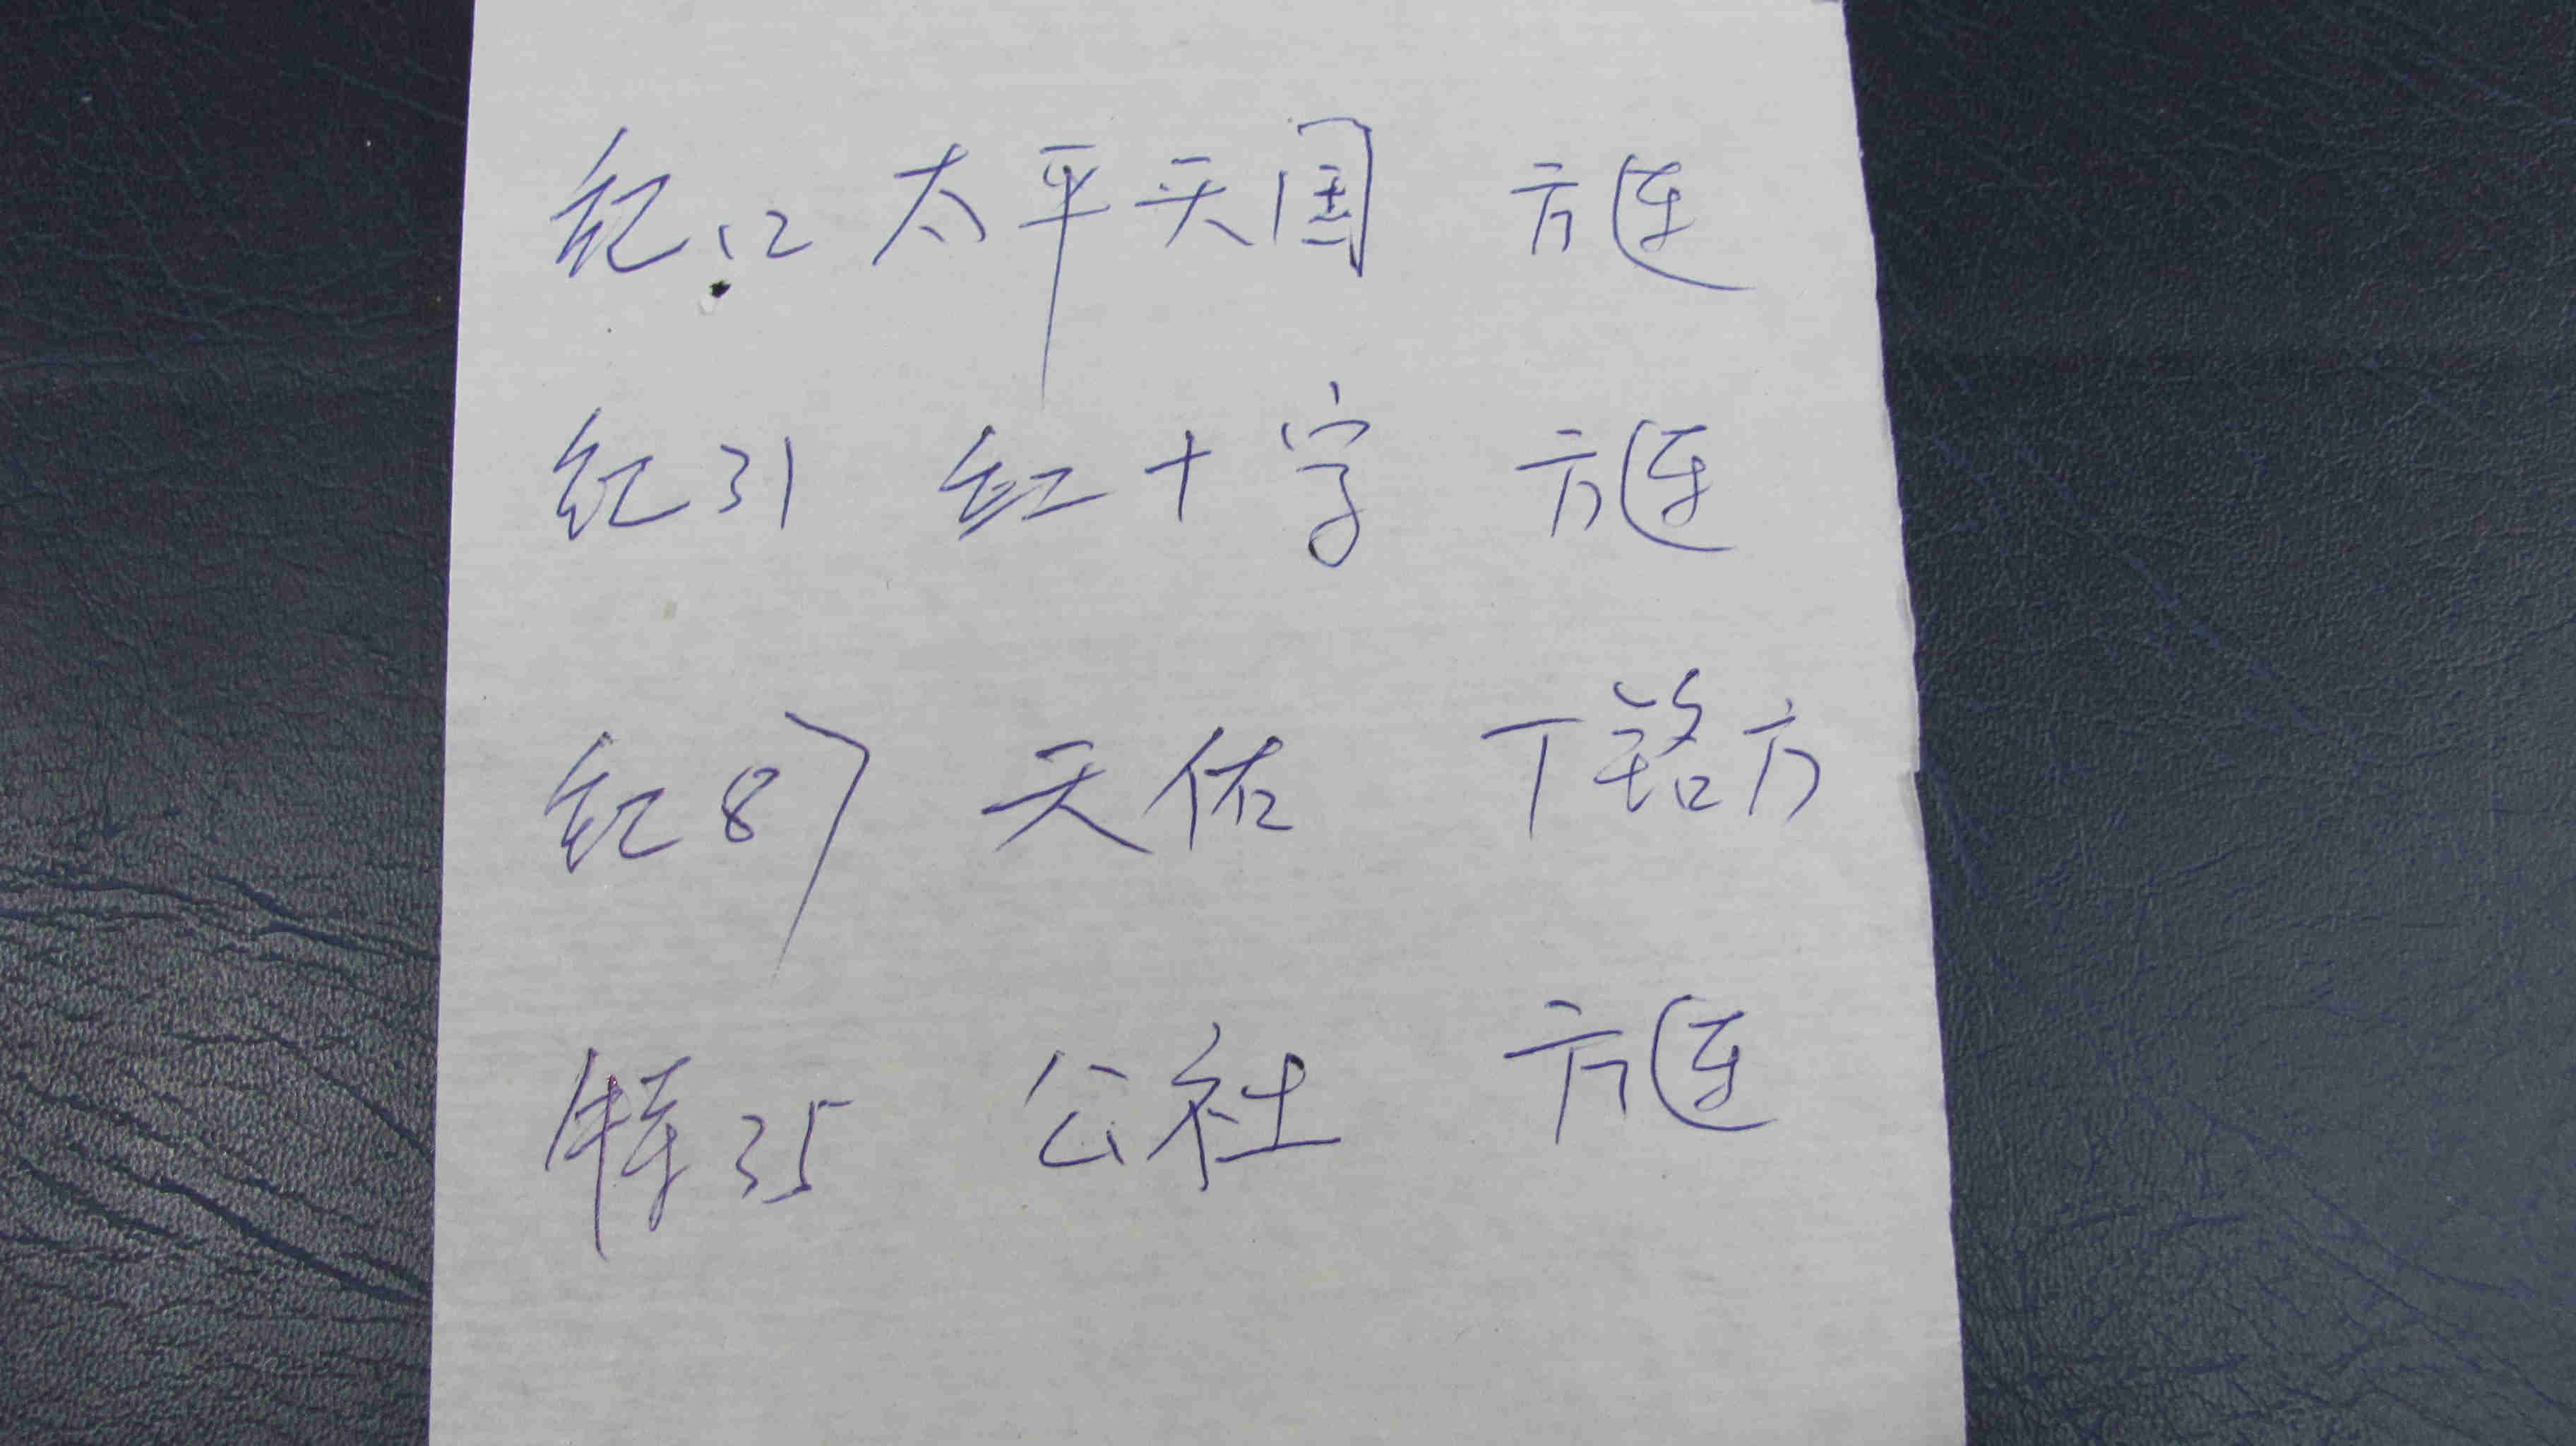 纪12 太平天国 方连
纪31 红十字 方连
纪87 天佑 丁铭方
特35 公社 方连